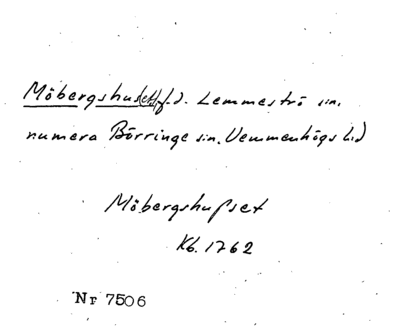 Möbergshuset f.d. Lemmeströ sn.
numera Börringe sn. Vemmenhögs hd
Möbergshusset
Kb. 1762
Nr 7506